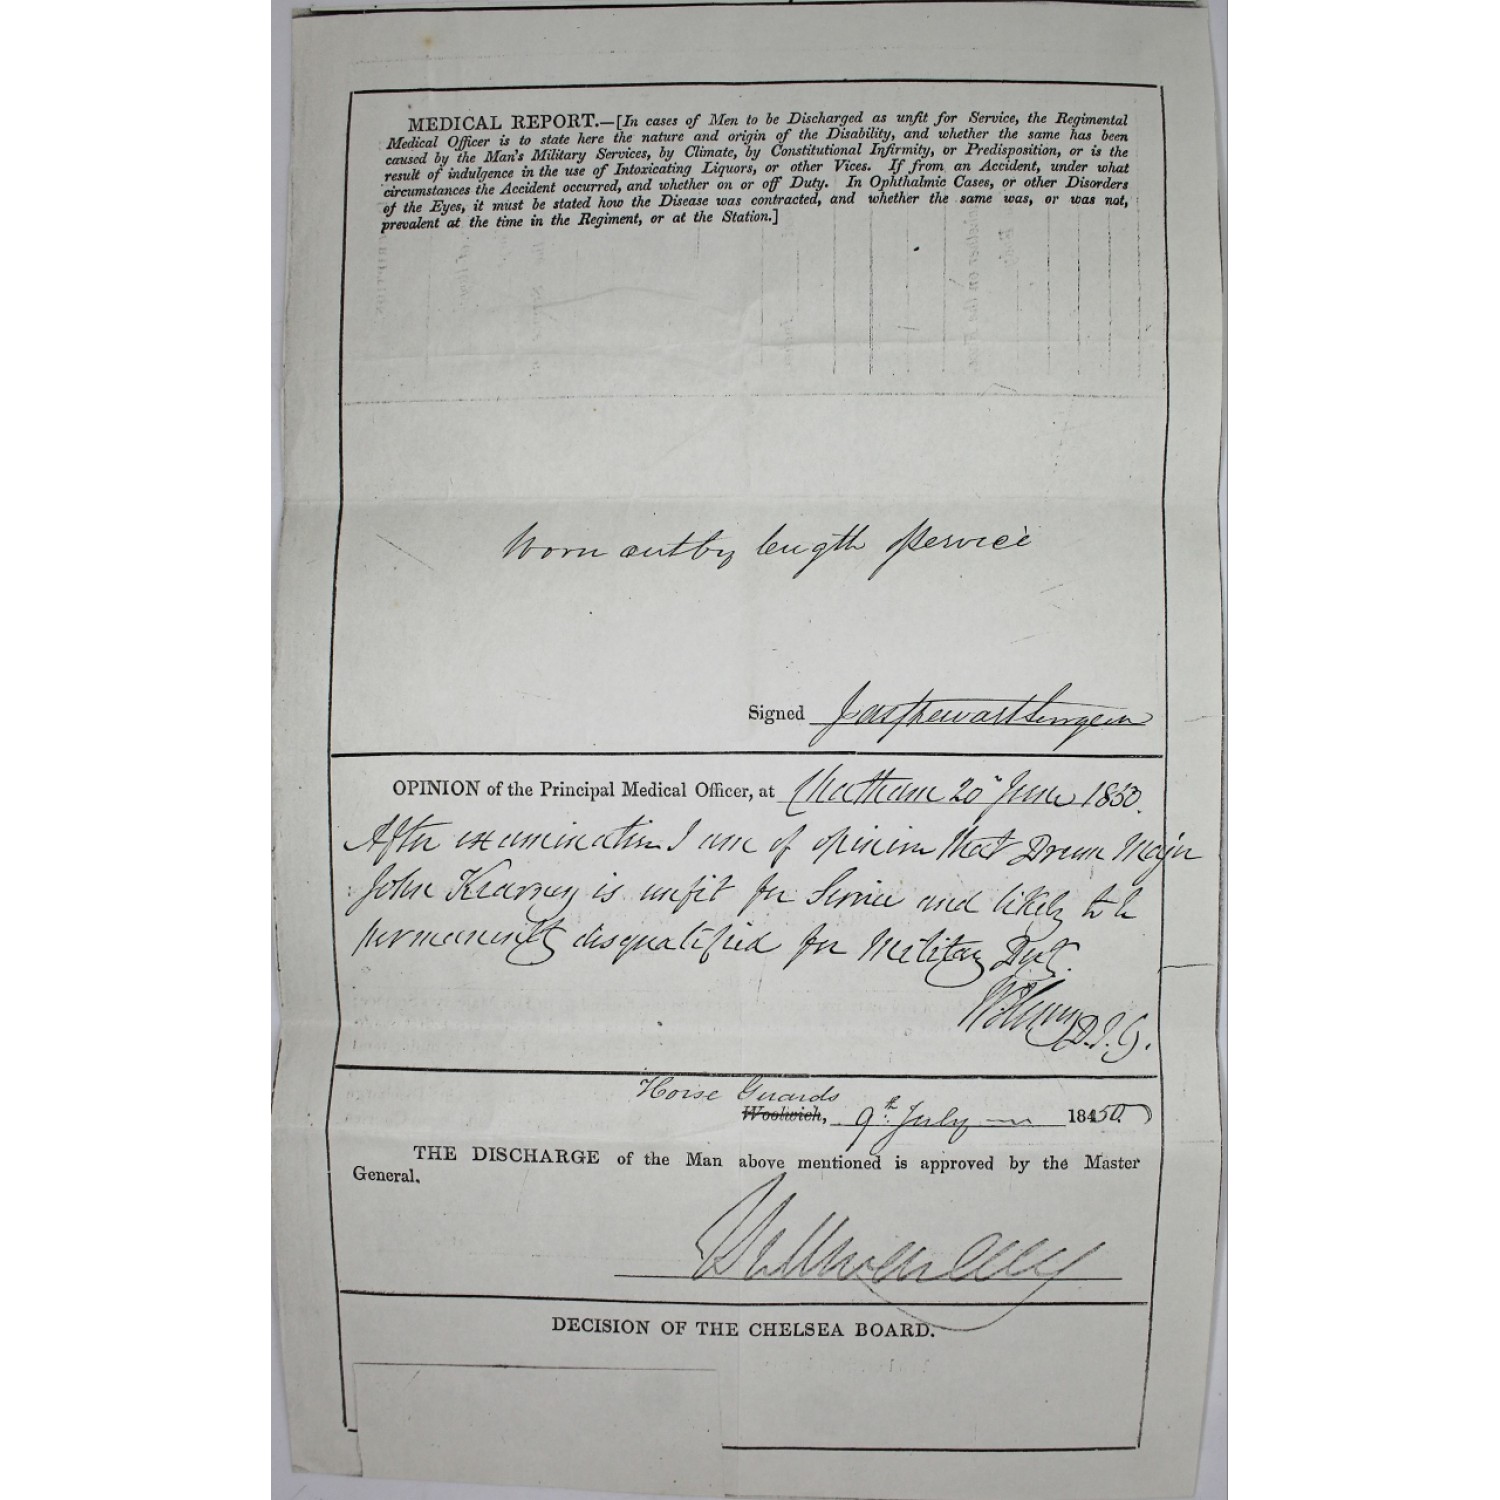 MEDICAL REPORT.—[In cases of Men to be Discharged as unfit for Service, the Regimental
Medical Officer is to state here the nature and origin of the Disability, and whether the same has been
caused by the Man's Military Services, by Climate, by Constitutional Infirmity, or Predisposition, or is the
result of indulgence in the use of Intoxicating Liquors, or other Vices. If from an Accident, under what
circumstances the Accident occurred, and whether on or off Duty. In Ophthalmic Cases, or other Disorders
of the Eyes, it must be stated how the Disease was contracted, and whether the same was, or was not,
prevalent at the time in the Regiment, or at the Station.]
Worn out by length of Service
Signed Jas Stewart Surgeon
OPINION of the Principal Medical Officer, at Chatham 20th June 1850.
After examination I am of opinion that Drum Major
John Kearney is unfit for Service and likely to be
permanently disqualified for Military Duty.
D.I.G.
Horse Guards
Woolwich, 9th July 18450
THE DISCHARGE of the Man above mentioned is approved by the Master
General.
DECISION OF THE CHELSEA BOARD.